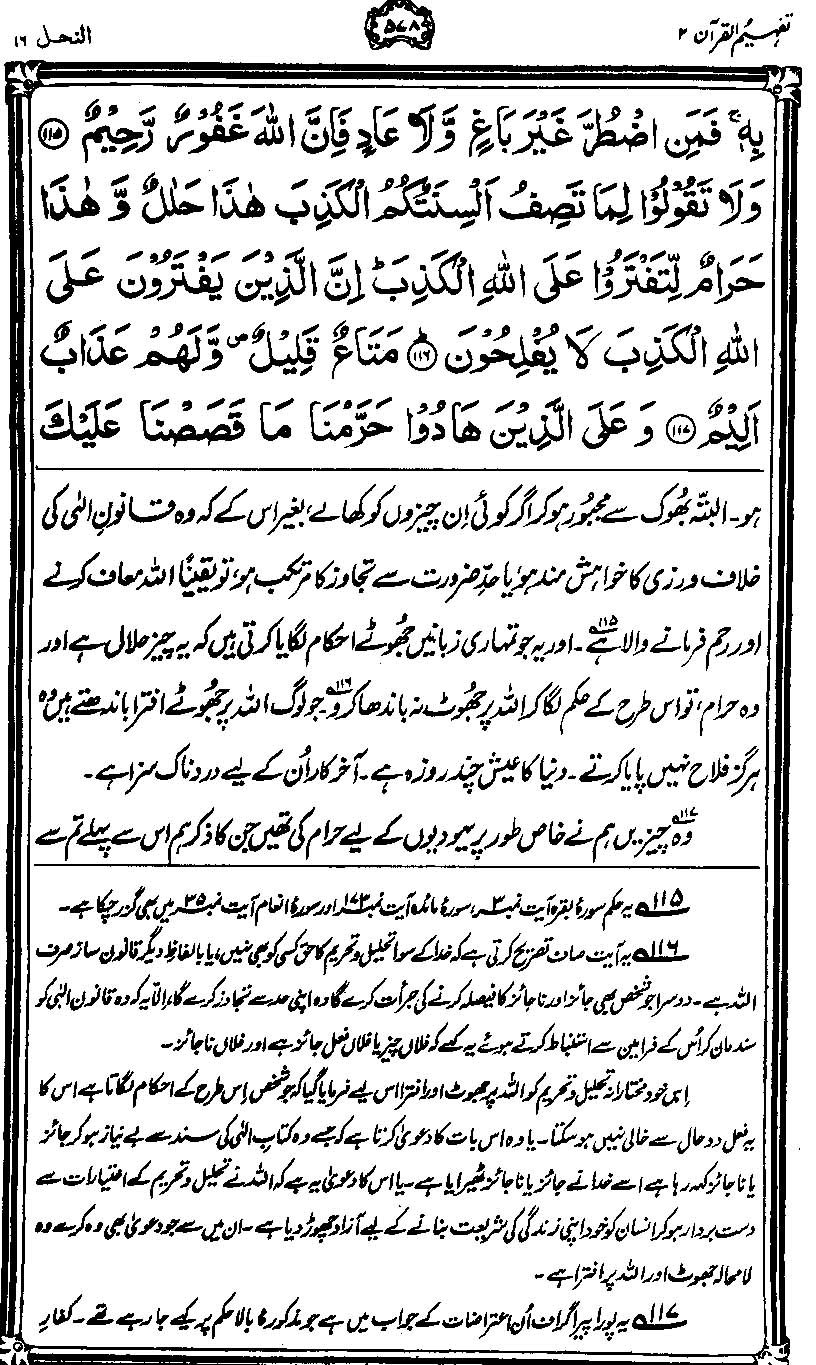 تفہیم القرآن ۲
۵۷۸
النحل ۱۶
بِهٖ ۚ فَمَنِ اضْطُرَّ غَيْرَ بَاغٍ وَّلَا عَادٍ فَاِنَّ اللّٰهَ غَفُوْرٌ رَّحِيْمٌ ﴿۱۱۵﴾
وَلَا تَقُوْلُوْا لِمَا تَصِفُ اَلْسِنَتُكُمُ الْكَذِبَ هٰذَا حَلٰلٌ وَّ هٰذَا
حَرَامٌ لِّتَفْتَرُوْا عَلَى اللّٰهِ الْكَذِبَ ؕ اِنَّ الَّذِيْنَ يَفْتَرُوْنَ عَلَى
اللّٰهِ الْكَذِبَ لَا يُفْلِحُوْنَ ﴿۱۱۶﴾ ؕ مَتَاعٌ قَلِيْلٌ ۪ وَّلَهُمْ عَذَابٌ
اَلِيْمٌ ﴿۱۱۷﴾ وَ عَلَى الَّذِيْنَ هَادُوْا حَرَّمْنَا مَا قَصَصْنَا عَلَيْكَ
ہو۔ البتہ بھُوک سے مجبُور ہو کر اگر کوئی اِن چیزوں کو کھا لے، بغیر اس کے کہ وہ قانونِ الٰہی کی
خلاف ورزی کا خواہش مند ہو، یا حدِّ ضرورت سے تجاوز کا مرتکب ہو، تو یقینًا اللہ معاف کرنے
اور رحم فرمانے والا ہے۱۱۵۔ اور یہ جو تمہاری زبانیں جھُوٹے احکام لگایا کرتی ہیں کہ یہ چیز حلال ہے اور
وہ حرام، تو اس طرح کے حکم لگا کر اللہ پر جھُوٹ نہ باندھا کرو۱۱۶۔ جو لوگ اللہ پر جھُوٹے افترا باندھتے ہیں وہ
ہرگز فلاح نہیں پایا کرتے۔ دنیا کا عیش چند روزہ ہے۔ آخرکار اُن کے لیے دردناک سزا ہے۔
۱۱۷وہ چیزیں ہم نے خاص طور پر یہودیوں کے لیے حرام کی تھیں جن کا ذکر ہم اس سے پہلے تم سے
۱۱۵ یہ حکم سورۂ بقرہ آیت نمبر ۳، سورۂ مائدہ آیت نمبر ۱۷۳ اور سورۂ انعام آیت نمبر ۳۵ میں بھی گزر چکا ہے۔
۱۱۶ یہ آیت صاف تصریح کرتی ہے کہ خدا کے سوا تحلیل و تحریم کا حق کسی کو بھی نہیں، یا بالفاظِ دیگر قانون ساز صرف
اللہ ہے۔ دوسرا جو شخص بھی جائز اور ناجائز کا فیصلہ کرنے کی جرأت کرے گا وہ اپنی حد سے تجاوز کرے گا، اِلّا یہ کہ وہ قانونِ الٰہی کو
سند مان کر اُس کے فرامین سے استنباط کرتے ہوئے یہ کہے کہ فلاں چیز یا فلاں فعل جائز ہے اور فلاں ناجائز۔
اِس خود مختارانہ تحلیل و تحریم کو اللہ پر جھوٹ اور افترا اس لیے فرمایا گیا کہ جو شخص اِس طرح کے احکام لگاتا ہے اس کا
یہ فعل دو حال سے خالی نہیں ہو سکتا۔ یا وہ اس بات کا دعویٰ کرتا ہے کہ جسے وہ کتابِ الٰہی کی سند سے بے نیاز ہو کر جائز
یا ناجائز کہہ رہا ہے اسے خدا نے جائز یا ناجائز ٹھیرایا ہے۔ یا اس کا دعویٰ یہ ہے کہ اللہ نے تحلیل و تحریم کے اختیارات سے
دست بردار ہو کر انسان کو خود اپنی زندگی کی شریعت بنانے کے لیے آزاد چھوڑ دیا ہے۔ ان میں سے جو دعویٰ بھی وہ کرے وہ
لامحالہ جھوٹ اور اللہ پر افترا ہے۔
۱۱۷ یہ پورا پیراگراف اُن اعتراضات کے جواب میں ہے جو مذکورۂ بالا حکم پر کیے جا رہے تھے۔ کفارِ